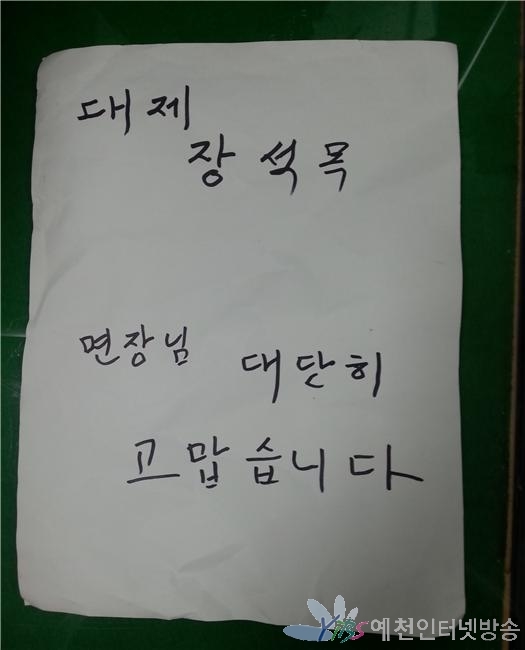 대제
장석목
면장님 대단히
고맙습니다
KIBS 예천인터넷방송